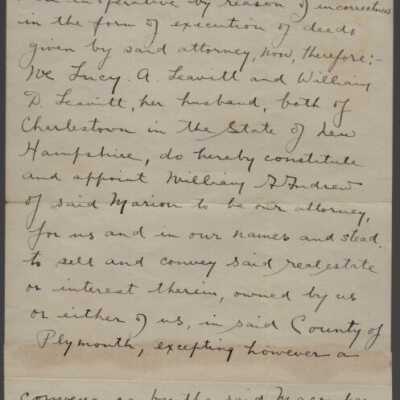 inoperative by reason of incorrectness
in the form of execution of deeds
given by said attorney, now, therefore;-
We Lucy A. Leavitt and William
D. Leavitt, her husband, both of
Charlestown in the State of New
Hampshire, do hereby constitute
and appoint William A Andrew
of said Marion to be our attorney,
for us and in our names and stead,
to sell and convey said real estate
or interest therein, owned by us
or either of us, in said County of
Plymouth, excepting however a
by the said